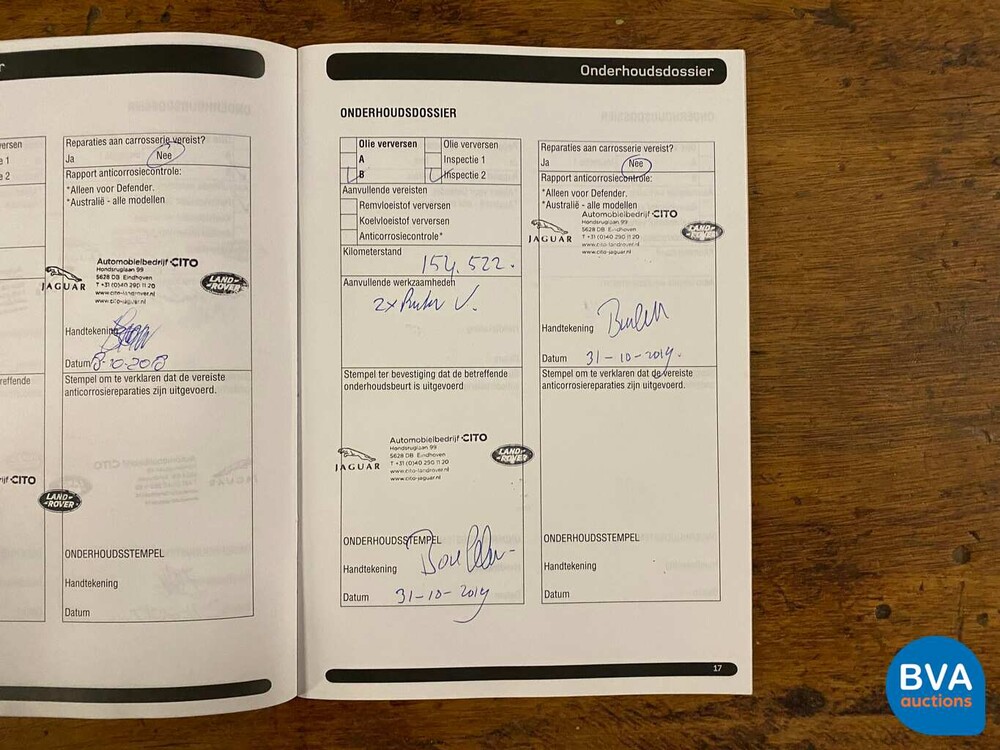 r
Onderhoudsdossier
ONDERHOUDSDOSSIER
ersen
e 1
e 2
Reparaties aan carrosserie vereist?
Ja Nee
Rapport anticorrosiecontrole:
*Alleen voor Defender.
*Australië - alle modellen
Automobielbedrijf CITO
Hondsruglaan 99
5628 DB Eindhoven
T +31 (0)40 290 11 20
www.cito-landrover.nl
www.cito-jaguar.nl
JAGUAR
LAND-
ROVER
Handtekening
Datum 8-10-2018
treffende
Stempel om te verklaren dat de vereiste
anticorrosiereparaties zijn uitgevoerd.
ijf CITO
LAND-
ROVER
ONDERHOUDSSTEMPEL
Handtekening
Datum
Olie verversen Olie verversen
A Inspectie 1
B Inspectie 2
Aanvullende vereisten
Remvloeistof verversen
Koelvloeistof verversen
Anticorrosiecontrole*
Kilometerstand
154.522.
Aanvullende werkzaamheden
2x
Stempel ter bevestiging dat de betreffende
onderhoudsbeurt is uitgevoerd
Automobielbedrijf CITO
Hondsruglaan 99
5628 DB Eindhoven
T +31 (0)40 290 11 20
www.cito-landrover.nl
www.cito-jaguar.nl
JAGUAR
LAND-
ROVER
ONDERHOUDSSTEMPEL
Handtekening
Datum 31-10-2019
Reparaties aan carrosserie vereist?
Ja Nee
Rapport anticorrosiecontrole:
*Alleen voor Defender.
*Australië - alle modellen
Automobielbedrijf CITO
Hondsruglaan 99
5628 DB Eindhoven
T +31 (0)40 290 11 20
www.cito-landrover.nl
www.cito-jaguar.nl
JAGUAR
LAND-
ROVER
Handtekening
Datum 31-10-2019.
Stempel om te verklaren dat de vereiste
anticorrosiereparaties zijn uitgevoerd.
ONDERHOUDSSTEMPEL
Handtekening
Datum
17
BVA
auctions